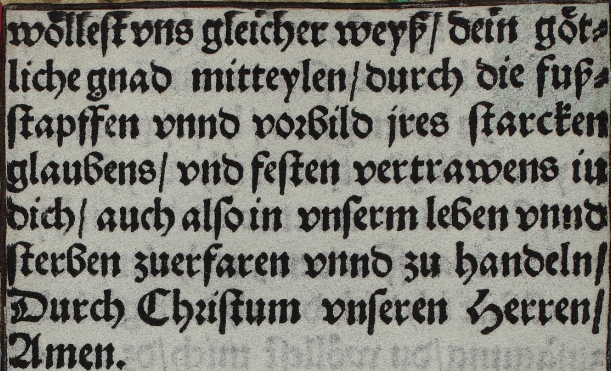 wöllest vns gleicher weyß/ dein göt⸗
liche gnad mitteylen/ durch die fuß⸗
stapffen vnnd vorbild jres starcken
glaubens/ vnd festen vertrawens in
dich/ auch also in vnserm leben vnnd
sterben zuerfaren vnnd zu handeln/
Durch Christum vnseren Herren/
Amen.